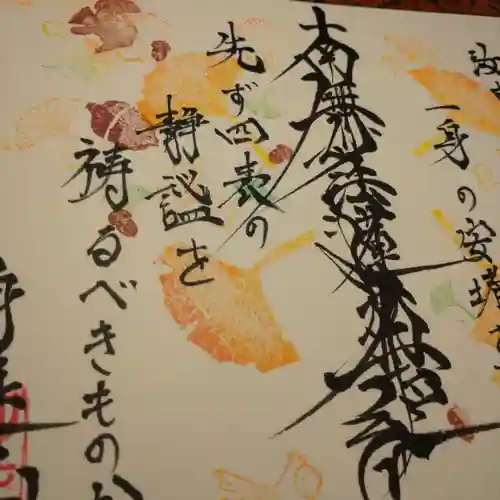 一身の安堵
南無妙法蓮華経
先ず四表の
静謐を
祷るべきものか